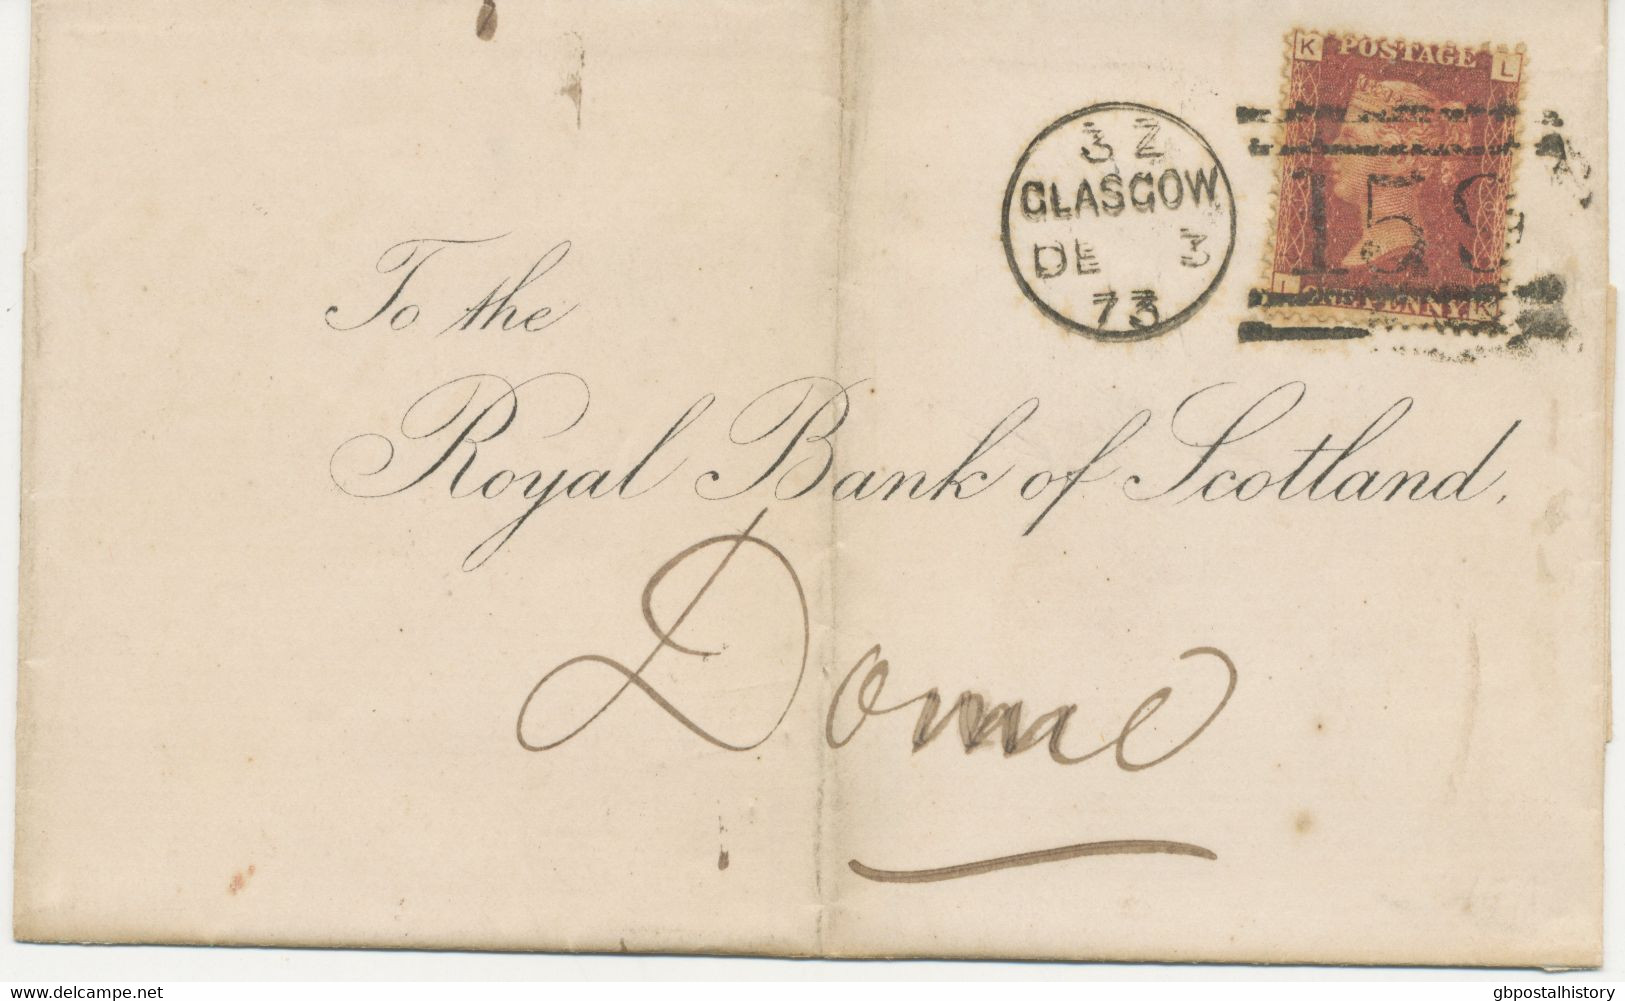 K POSTAGE L
3 Z
GLASGOW
DE 3
73
159
L ONE PENNY K
To the
Royal Bank of Scotland,
www.delcampe.net
gbpostalhistory